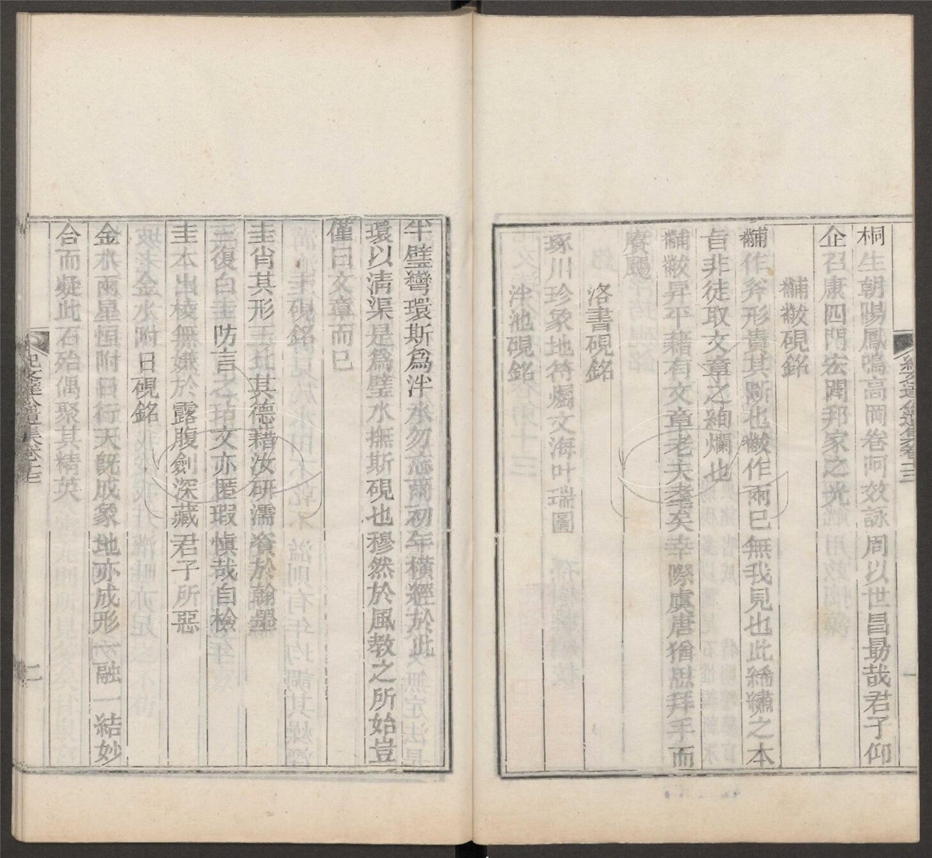 桐生朝陽鳳鳴高岡卷阿效詠周以世昌勗哉君子仰
企召康四門宏闢邦家之光
黼黻硯銘
黼作斧形貴其斷也黻作兩已無我見也此絺繡之本
旨非徒取文章之絢爛也
黼黻昇平藉有文章老夫耄矣幸際虞唐猶思拜手而
賡颺
洛書硯銘
琢川珍象地符爛文海叶瑞圖
泮池硯銘
半璧彎環斯為泮水勿忘爾初年橫經於此
環以清渠是為璧水撫斯硯也穆然於風教之所始豈
僅曰文章而已
圭硯銘
圭肖其形玉比其德藉汝研濡資於翰墨
三復白圭防言之玷文亦匿瑕慎哉自檢
圭本出稜無嫌於露腹劍深藏君子所惡
金水附日硯銘
金水兩星恒附日行天既成象地亦成形一融一結妙
合而凝此石殆偶聚其精英
紀文達公遺集卷十三
一
紀文達公遺集卷十三
二